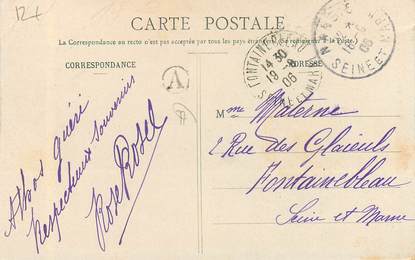 124
CARTE POSTALE
La Correspondance au recto n'est pas acceptée par tous les pays étrangers (Se renseigner à la Poste.)
CORRESPONDANCE
ADRESSE
FONTAINEBLEAU
14 30
19
06
SEINE ET MARNE
06
SEINE ET
A
Athos guéri
Respectueux souvenirs
Rose Rosel
Mme Materne
2 Rue des Glaïeuls
Fontainebleau
Seine et Marne